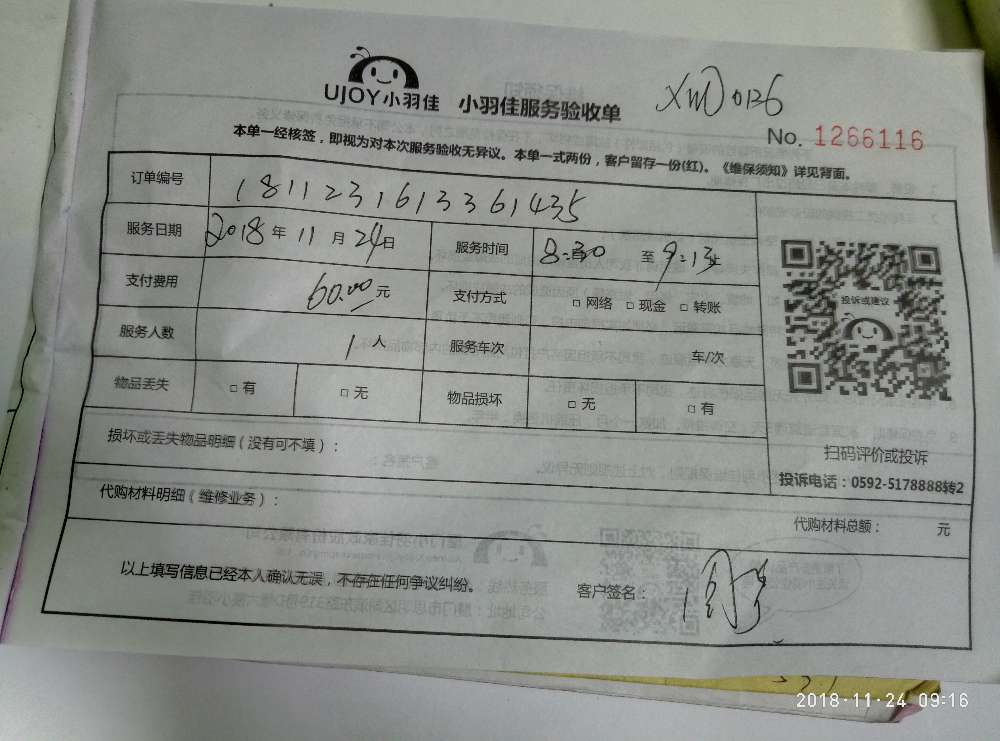 UJOY小羽佳 小羽佳服务验收单
XMD0136
No. 1266116
本单一经核签，即视为对本次服务验收无异议。本单一式两份，客户留存一份(红)。《维保须知》详见背面。
订单编号 1811231613361435
服务日期 2018年11月24日 服务时间 8:30至9:13止
支付费用 60.00元 支付方式 □网络 □现金 □转账
服务人数 1人 服务车次 车/次
物品丢失 □有 □无 物品损坏 □无 □有
投诉或建议
扫码评价或投诉
投诉电话：0592-5178888转2
损坏或丢失物品明细（没有可不填）：
代购材料明细（维修业务）： 代购材料总额： 元
以上填写信息已经本人确认无误，不存在任何争议纠纷。 客户签名：
2018-11-24 09:16